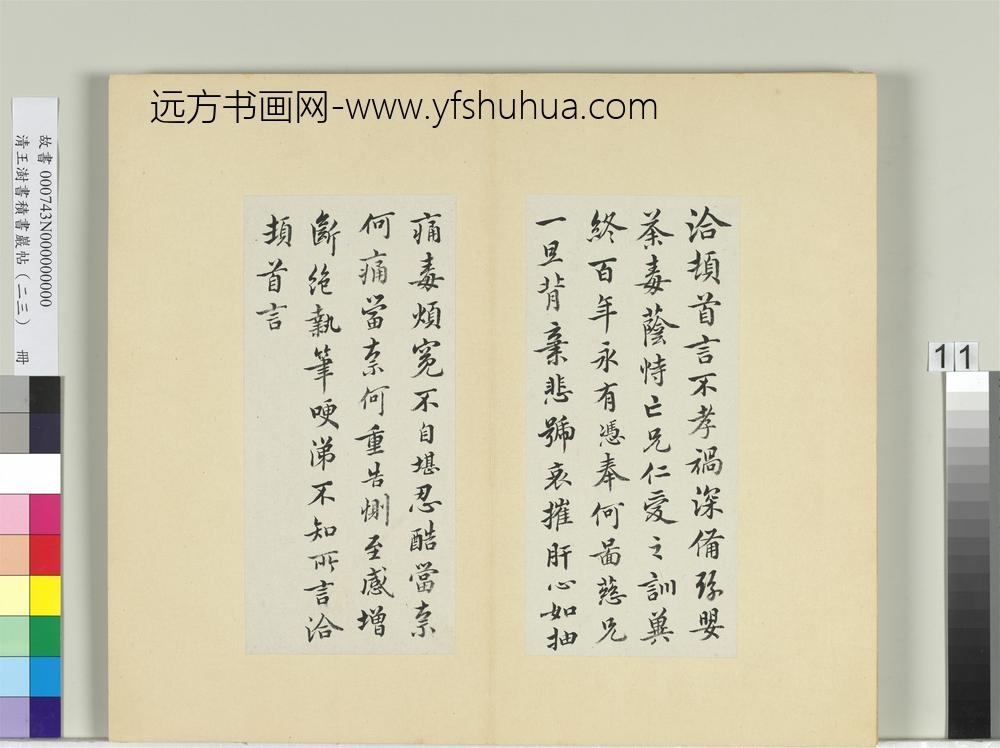 远方书画网-www.yfshuhua.com
故書 000743N000000000
清王澍書積書巖帖(二三) 冊
11
洽頓首言不孝禍深備豫嬰
荼毒蔭恃亡兄仁愛之訓冀
終百年永有憑奉何啚慈兄
一旦背棄悲號哀摧肝心如抽
痛毒煩冤不自堪忍酷當柰
何痛當柰何重告惻至感增
斷絕執筆哽涕不知所言洽
頓首言